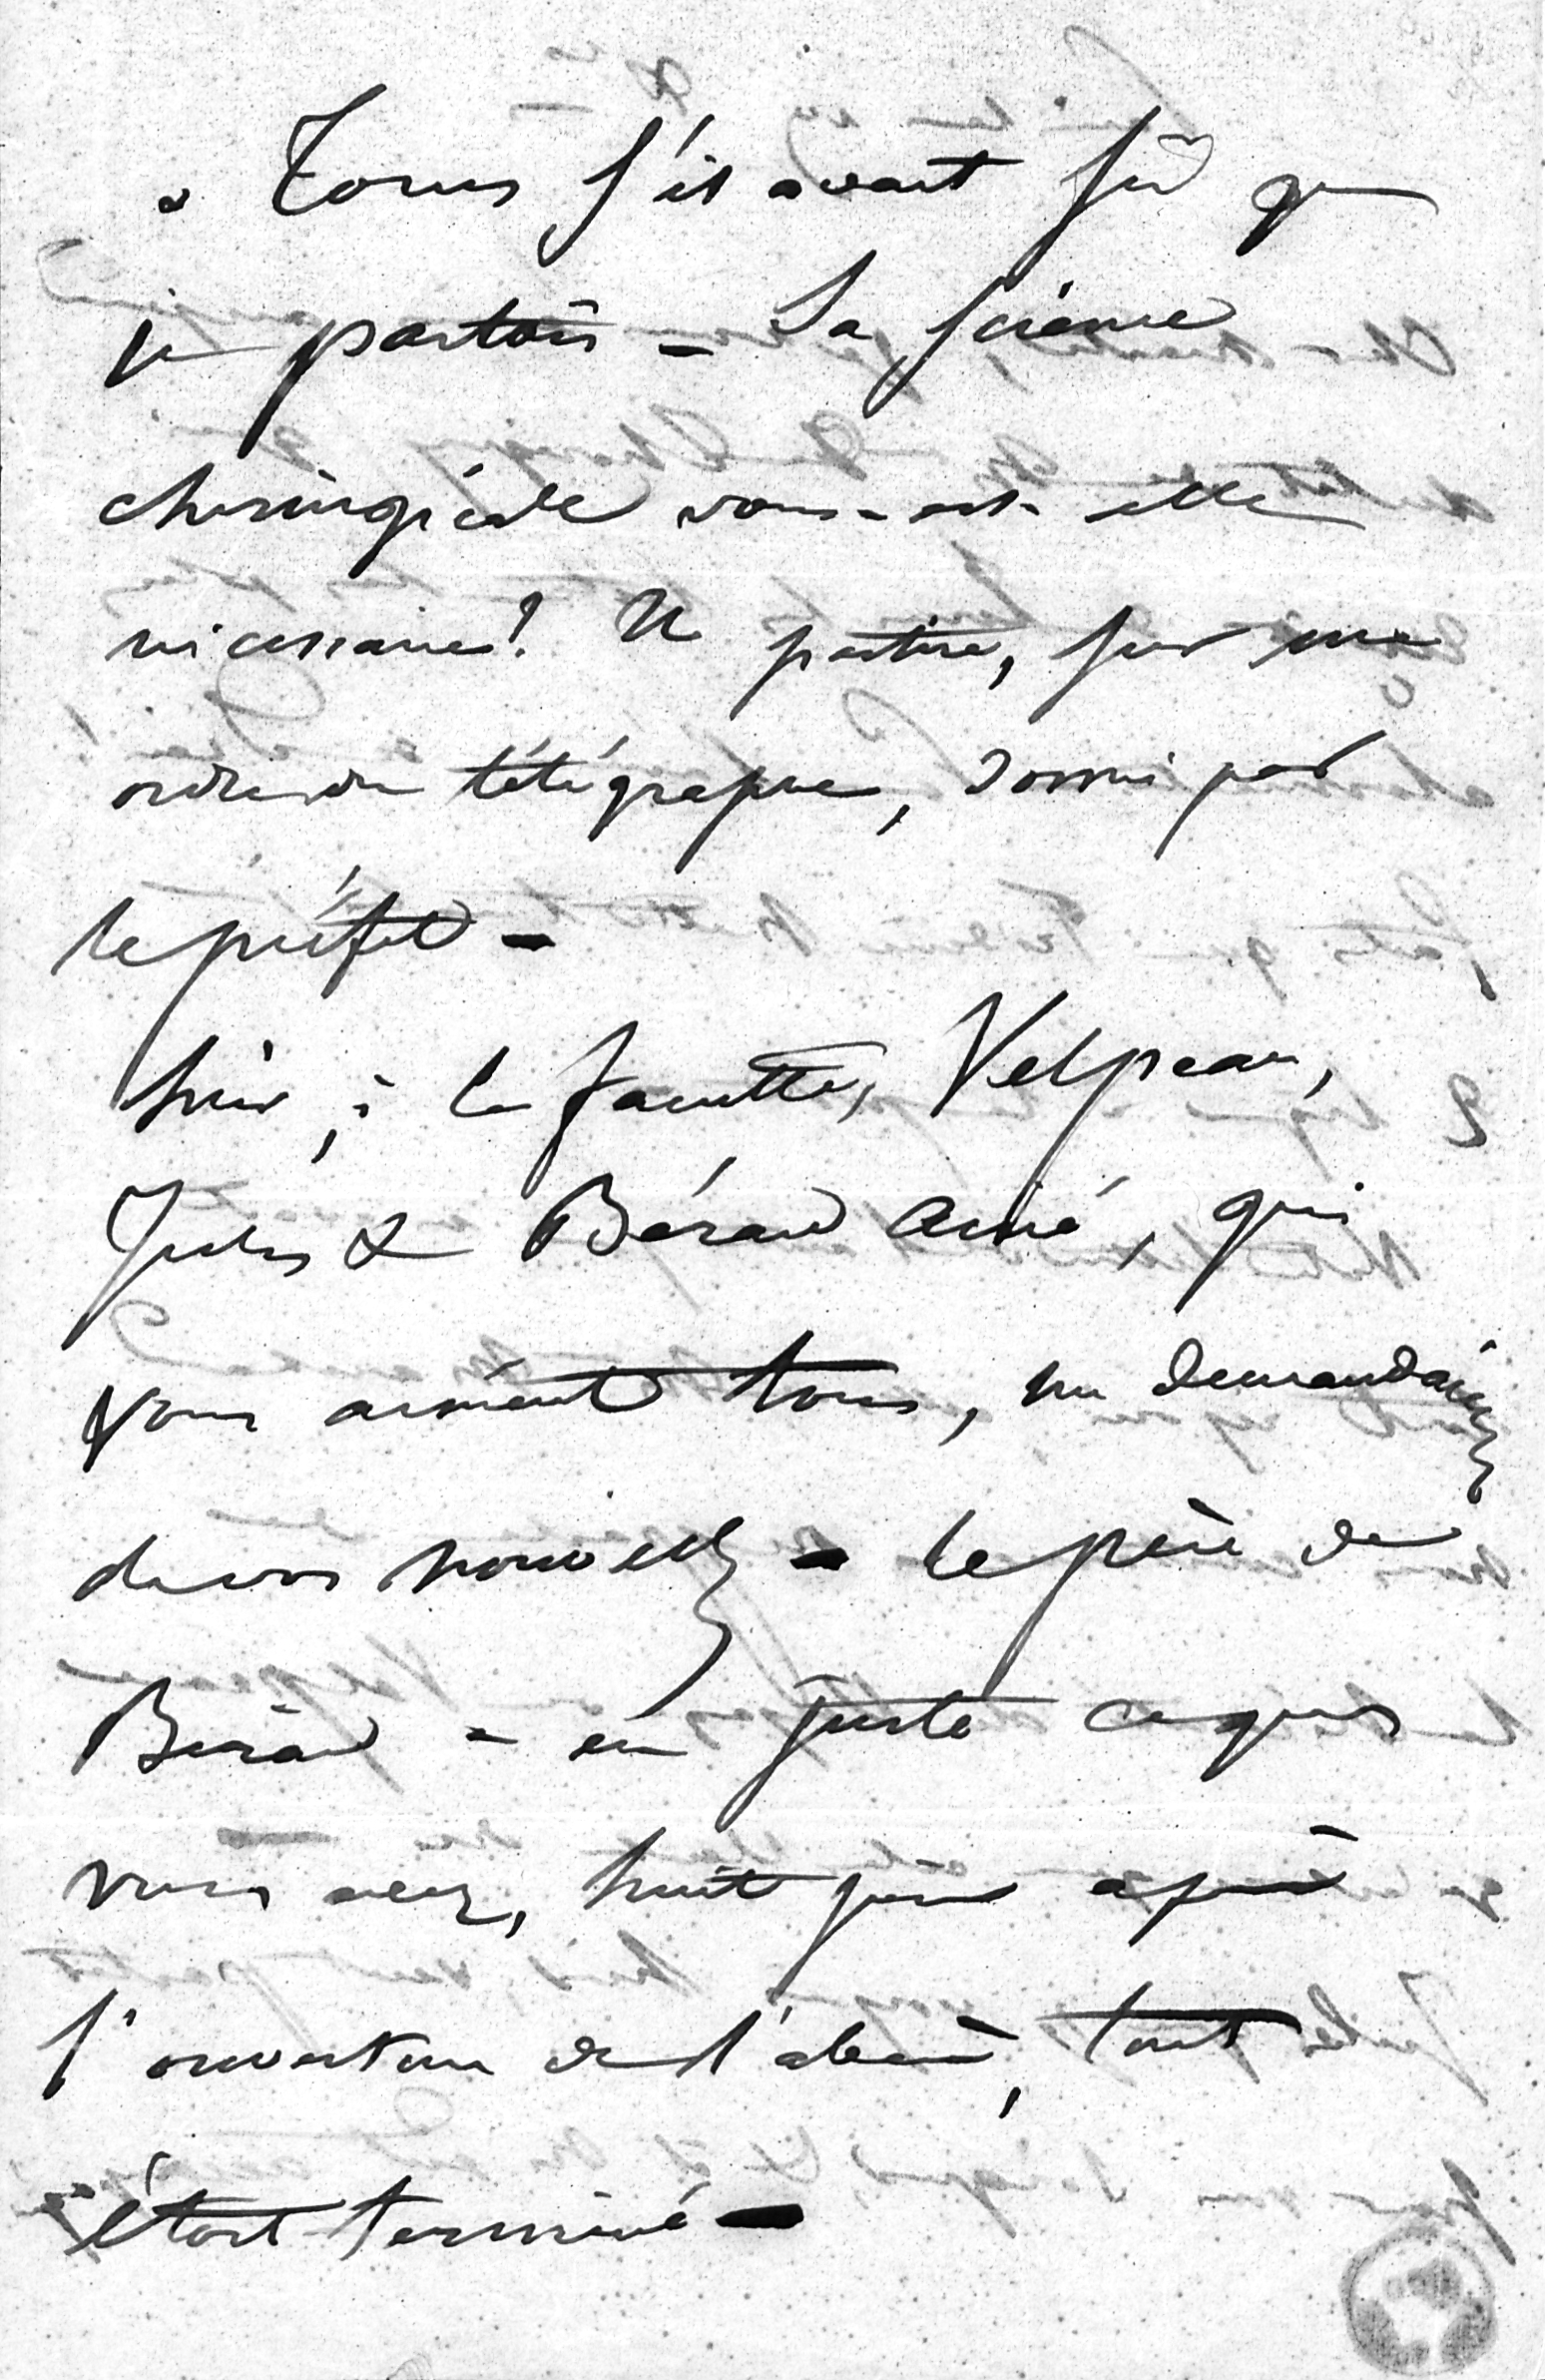 à Tours s'il avait su que
je partais - Sa science
chirurgicale vous-est-elle
nécessaire? Il partira, sur un
ordre du télégraphe, donné par
le préfet -
hier, à la faculté, Velpeau,
Jules & Bérard ainé, qui
vous aiment tous, me demandaient
de vos nouvelles - le père de
Bérard a eu juste ce que
vous avez, huit jours après
l'ouverture de l'abcès, tout
était terminé -